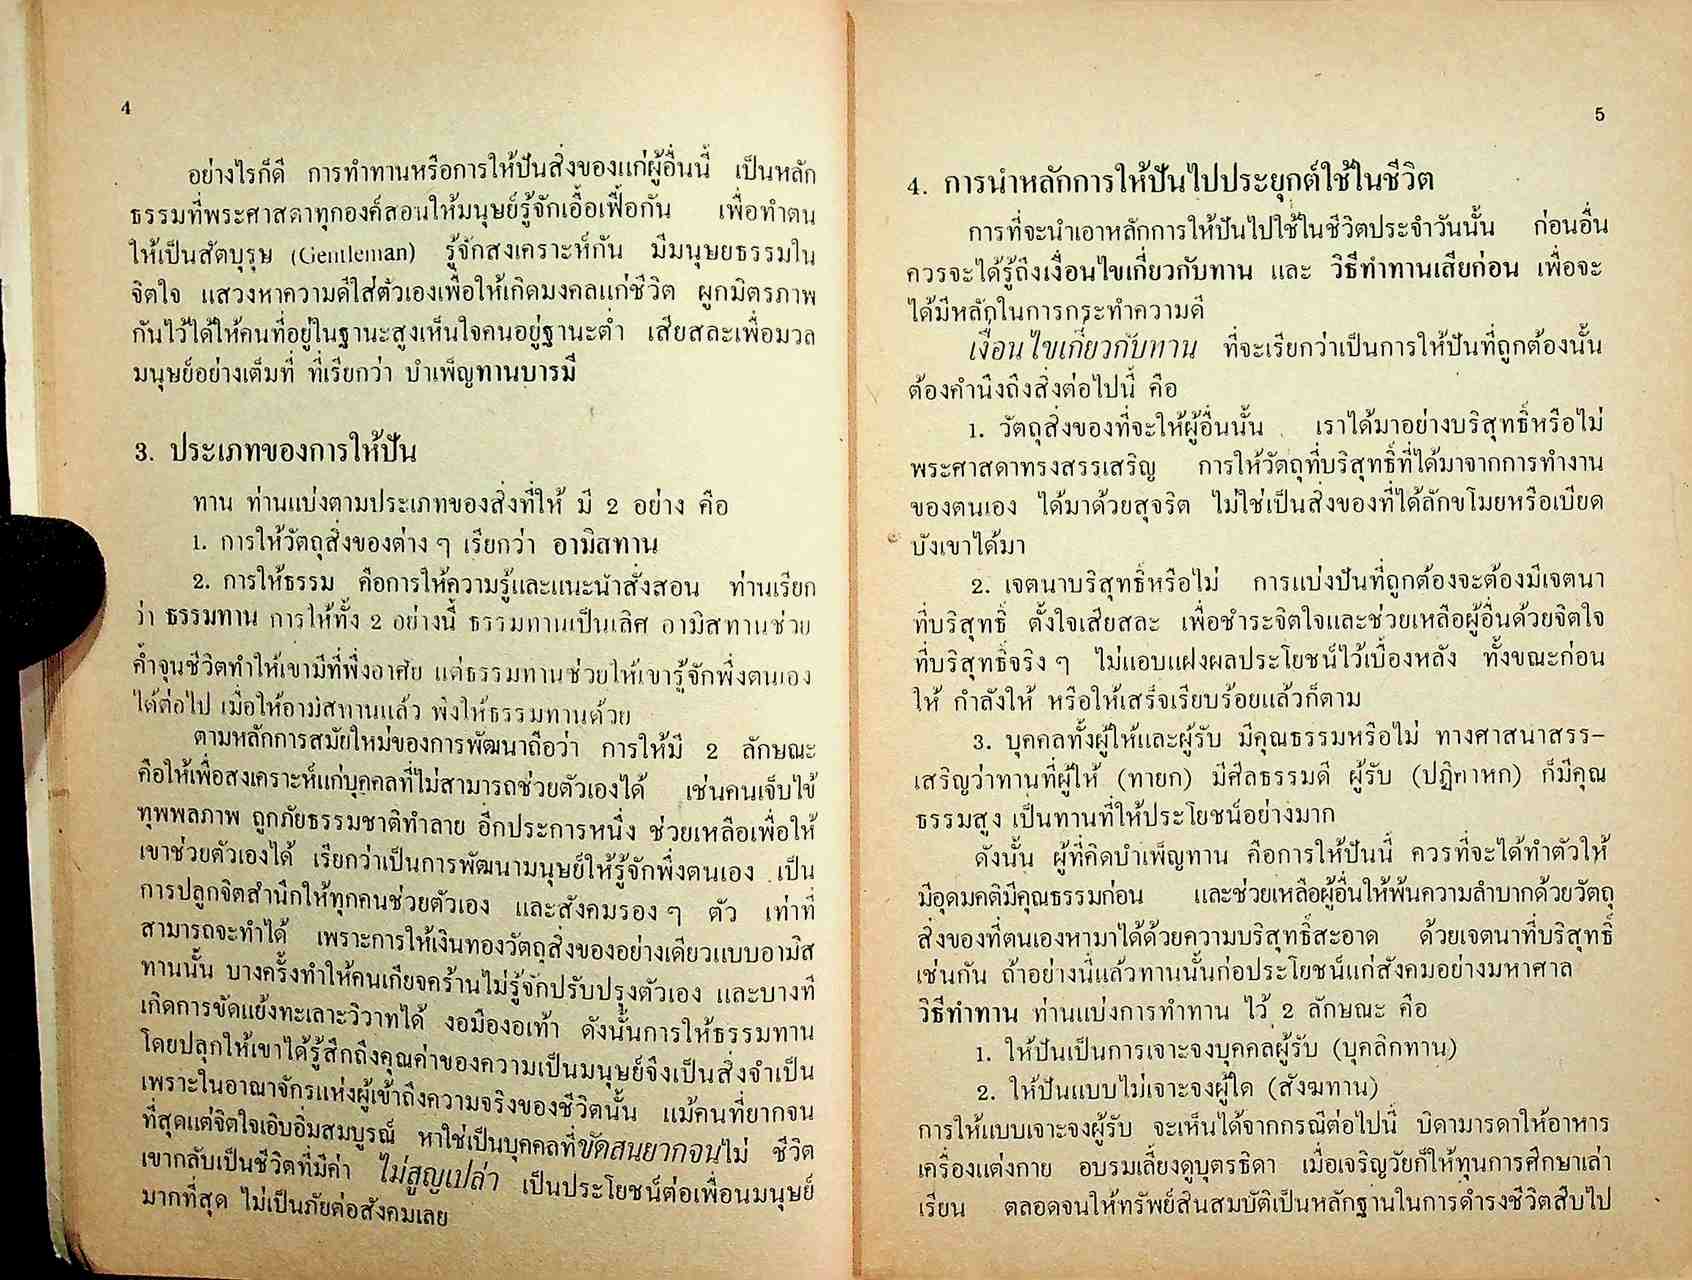 4
อย่างไรก็ดี การทำทานหรือการให้ปันสิ่งของแก่ผู้อื่นนี้ เป็นหลัก
ธรรมที่พระศาสดาทุกองค์สอนให้มนุษย์รู้จักเอื้อเฟื้อกัน เพื่อทำตน
ให้เป็นสัตบุรุษ (Gentleman) รู้จักสงเคราะห์กัน มีมนุษยธรรมใน
จิตใจ แสวงหาความดีใส่ตัวเองเพื่อให้เกิดมงคลแก่ชีวิต ผูกมิตรภาพ
กันไว้ได้ให้คนที่อยู่ในฐานะสูงเห็นใจคนอยู่ฐานะต่ำ เสียสละเพื่อมวล
มนุษย์อย่างเต็มที่ ที่เรียกว่า บำเพ็ญทานบารมี
3. ประเภทของการให้ปัน
ทาน ท่านแบ่งตามประเภทของสิ่งที่ให้ มี 2 อย่าง คือ
1. การให้วัตถุสิ่งของต่าง ๆ เรียกว่า อามิสทาน
2. การให้ธรรม คือการให้ความรู้และแนะนำสั่งสอน ท่านเรียก
ว่า ธรรมทาน การให้ทั้ง 2 อย่างนี้ ธรรมทานเป็นเลิศ อามิสทานช่วย
ค้ำจุนชีวิตทำให้เขามีที่พึ่งอาศัย แต่ธรรมทานช่วยให้เขารู้จักพึ่งตนเอง
ได้ต่อไป เมื่อให้อามิสทานแล้ว พึงให้ธรรมทานด้วย
ตามหลักการสมัยใหม่ของการพัฒนาถือว่า การให้มี 2 ลักษณะ
คือให้เพื่อสงเคราะห์แก่บุคคลที่ไม่สามารถช่วยตัวเองได้ เช่นคนเจ็บไข้
ทุพพลภาพ ถูกภัยธรรมชาติทำลาย อีกประการหนึ่ง ช่วยเหลือเพื่อให้
เขาช่วยตัวเองได้ เรียกว่าเป็นการพัฒนามนุษย์ให้รู้จักพึ่งตนเอง เป็น
การปลูกจิตสำนึกให้ทุกคนช่วยตัวเอง และสังคมรอง ๆ ตัว เท่าที่
สามารถจะทำได้ เพราะการให้เงินทองวัตถุสิ่งของอย่างเดียวแบบอามิส
ทานนั้น บางครั้งทำให้คนเกียจคร้านไม่รู้จักปรับปรุงตัวเอง และบางที
เกิดการขัดแย้งทะเลาะวิวาทได้ งอมืองอเท้า ดังนั้นการให้ธรรมทาน
โดยปลุกให้เขาได้รู้สึกถึงคุณค่าของความเป็นมนุษย์จึงเป็นสิ่งจำเป็น
เพราะในอาณาจักรแห่งผู้เข้าถึงความจริงของชีวิตนั้น แม้คนที่ยากจน
ที่สุดแต่จิตใจเอิบอิ่มสมบูรณ์ หาใช่เป็นบุคคลที่ขัดสนยากจนไม่ ชีวิต
เขากลับเป็นชีวิตที่มีค่า ไม่สูญเปล่า เป็นประโยชน์ต่อเพื่อนมนุษย์
มากที่สุด ไม่เป็นภัยต่อสังคมเลย
5
4. การนำหลักการให้ปันไปประยุกต์ใช้ในชีวิต
การที่จะนำเอาหลักการให้ปันไปใช้ในชีวิตประจำวันนั้น ก่อนอื่น
ควรจะได้รู้ถึงเงื่อนไขเกี่ยวกับทาน และ วิธีทำทานเสียก่อน เพื่อจะ
ได้มีหลักในการกระทำความดี
เงื่อนไขเกี่ยวกับทาน ที่จะเรียกว่าเป็นการให้ปันที่ถูกต้องนั้น
ต้องคำนึงถึงสิ่งต่อไปนี้ คือ
1. วัตถุสิ่งของที่จะให้ผู้อื่นนั้น เราได้มาอย่างบริสุทธิ์หรือไม่
พระศาสดาทรงสรรเสริญ การให้วัตถุที่บริสุทธิ์ที่ได้มาจากการทำงาน
ของตนเอง ได้มาด้วยสุจริต ไม่ใช่เป็นสิ่งของที่ได้ลักขโมยหรือเบียด
บังเขาได้มา
2. เจตนาบริสุทธิ์หรือไม่ การแบ่งปันที่ถูกต้องจะต้องมีเจตนา
ที่บริสุทธิ์ ตั้งใจเสียสละ เพื่อชำระจิตใจและช่วยเหลือผู้อื่นด้วยจิตใจ
ที่บริสุทธิ์จริง ๆ ไม่แอบแฝงผลประโยชน์ไว้เบื้องหลัง ทั้งขณะก่อน
ให้ กำลังให้ หรือให้เสร็จเรียบร้อยแล้วก็ตาม
3. บุคคลทั้งผู้ให้และผู้รับ มีคุณธรรมหรือไม่ ทางศาสนาสรร-
เสริญว่าทานที่ผู้ให้ (ทายก) มีศีลธรรมดี ผู้รับ (ปฏิคาหก) ก็มีคุณ
ธรรมสูง เป็นทานที่ให้ประโยชน์อย่างมาก
ดังนั้น ผู้ที่คิดบำเพ็ญทาน คือการให้ปันนี้ ควรที่จะได้ทำตัวให้
มีอุดมคติมีคุณธรรมก่อน และช่วยเหลือผู้อื่นให้พ้นความลำบากด้วยวัตถุ
สิ่งของที่ตนเองหามาได้ด้วยความบริสุทธิ์สะอาด ด้วยเจตนาที่บริสุทธิ์
เช่นกัน ถ้าอย่างนี้แล้วทานนั้นก่อประโยชน์แก่สังคมอย่างมหาศาล
วิธีทำทาน ท่านแบ่งการทำทาน ไว้ 2 ลักษณะ คือ
1. ให้ปันเป็นการเจาะจงบุคคลผู้รับ (บุคลิกทาน)
2. ให้ปันแบบไม่เจาะจงผู้ใด (สังฆทาน)
การให้แบบเจาะจงผู้รับ จะเห็นได้จากกรณีต่อไปนี้ บิดามารดาให้อาหาร
เครื่องแต่งกาย อบรมเลี้ยงดูบุตรธิดา เมื่อเจริญวัยก็ให้ทุนการศึกษาเล่า
เรียน ตลอดจนให้ทรัพย์สินสมบัติเป็นหลักฐานในการดำรงชีวิตสืบไป